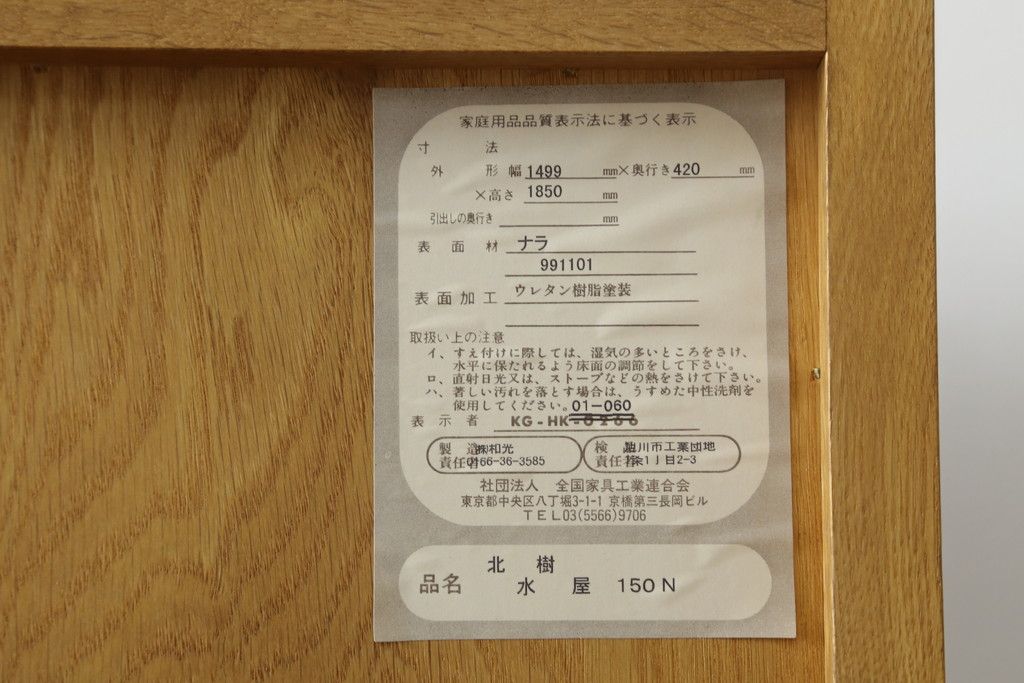 家庭用品品質表示法に基づく表示
寸法
外形 幅 1499 mm×奥行き 420 mm
×高さ 1850 mm
引出しの奥行き mm
表面材 ナラ
991101
表面加工 ウレタン樹脂塗装
取扱い上の注意
イ、すえ付けに際しては、湿気の多いところをさけ、
水平に保たれるよう床面の調節をして下さい。
ロ、直射日光又は、ストーブなどの熱をさけて下さい。
ハ、著しい汚れを落とす場合は、うすめた中性洗剤を
使用してください。 01-060
表示者 KG-HK-0266
製造 ㈱和光 検 川市工業団地
責任者 0166-36-3585 責任者 条1丁目2-3
社団法人 全国家具工業連合会
東京都中央区八丁堀3-1-1 京橋第三長岡ビル
TEL03(5566)9706
北樹
品名 水屋 150N